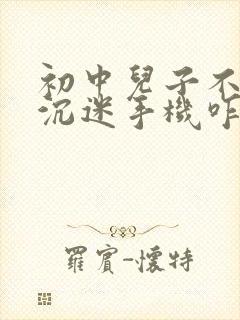 初中兒子不
沉迷手機咋
羅賓-懷特